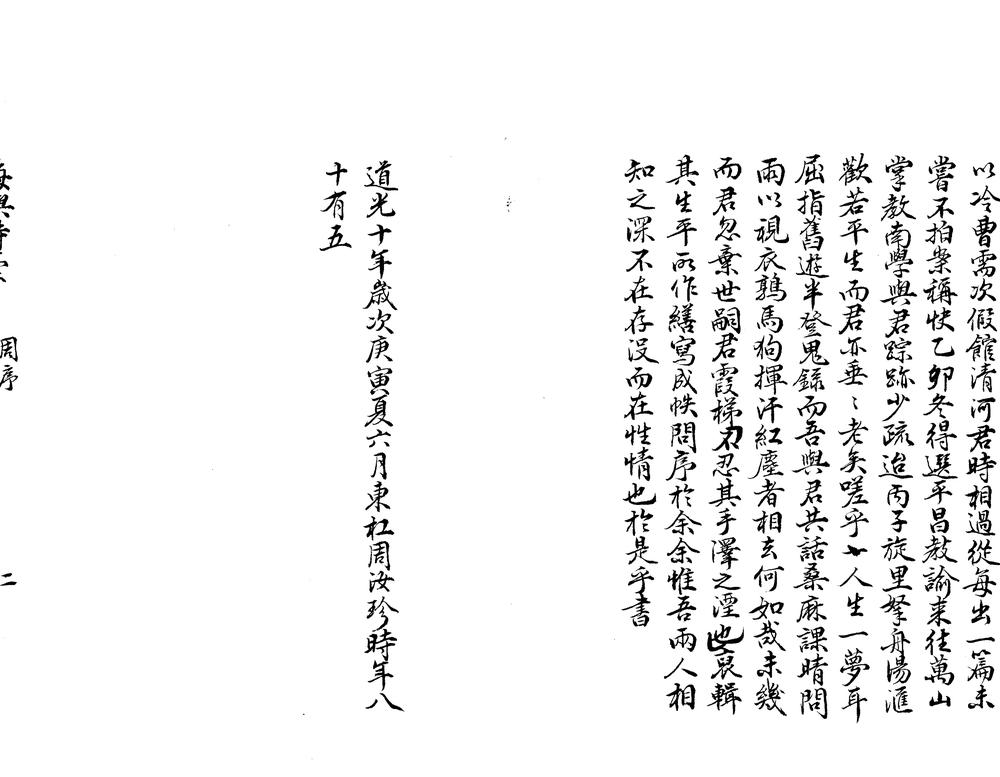 以冷曹需次假館清河君時相過從每出一篇未
嘗不拍案稱快乙卯冬得選平昌教諭来往萬山
掌教南學與君踪跡少疏迨丙子旋里拏舟湯滙
歡若平生而君亦垂〻老矣嗟乎人生一夢耳
屈指舊遊半登鬼錄而吾與君共話桑麻課晴問
雨以視衣鶉馬狗揮汗紅塵者相去何如哉未幾
而君忽棄世嗣君霞梯不忍其手澤之湮也裒輯
其生平所作繕寫成帙問序於余余惟吾兩人相
知之深不在存没而在性情也於是乎書
道光十年歲次庚寅夏六月東杠周汝珍時年八
十有五
周序
二